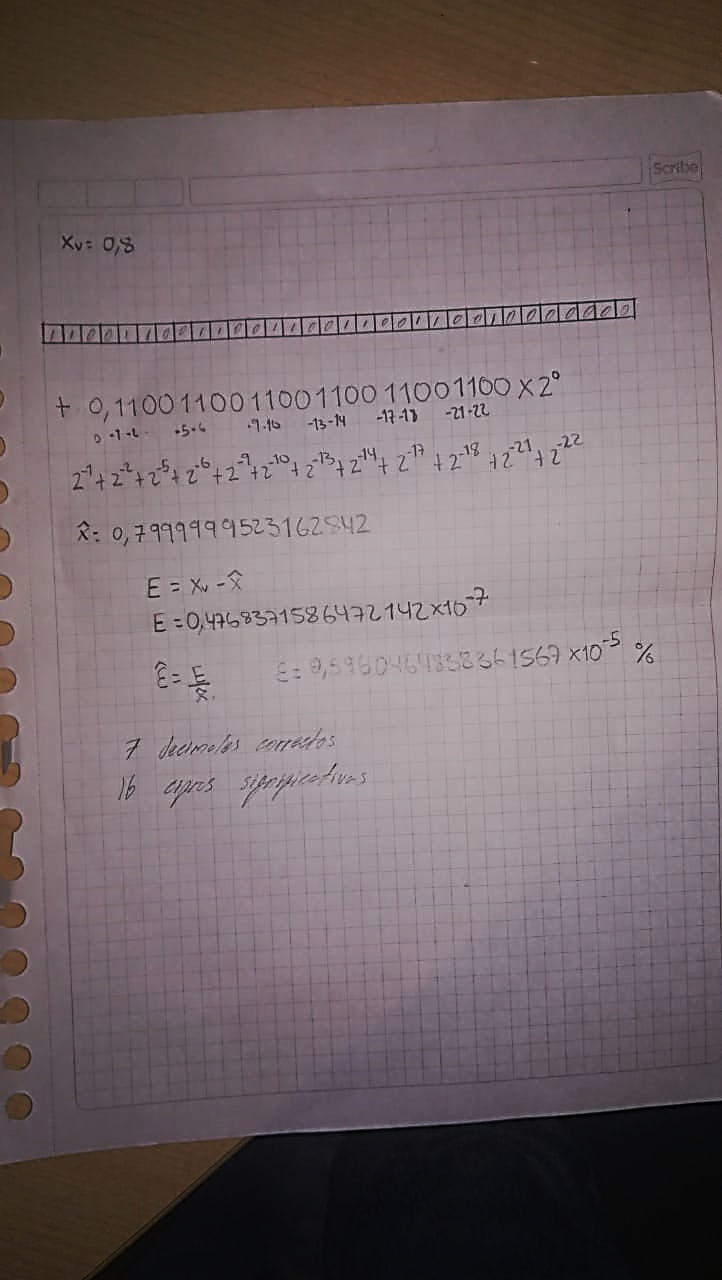 Scribe
Xv= 0,8
+ 0,110011001100110011001100 x 2⁰
0 -1-2- -5-6 -9-10 -13-14 -17-18 -21-22
2⁻¹+2⁻²+2⁻⁵+2⁻⁶+2⁻⁹+2⁻¹⁰+2⁻¹³+2⁻¹⁴+2⁻¹⁷+2⁻¹⁸+2⁻²¹+2⁻²²
x̂= 0,7999999523162842
E = Xv - x̂
E = 0,4768371586472142x10⁻⁷
Ê = E/x̂. Ɛ= 0,5960464838361567 x10⁻⁵ %
7 decimales correctos
16 cifras significativas